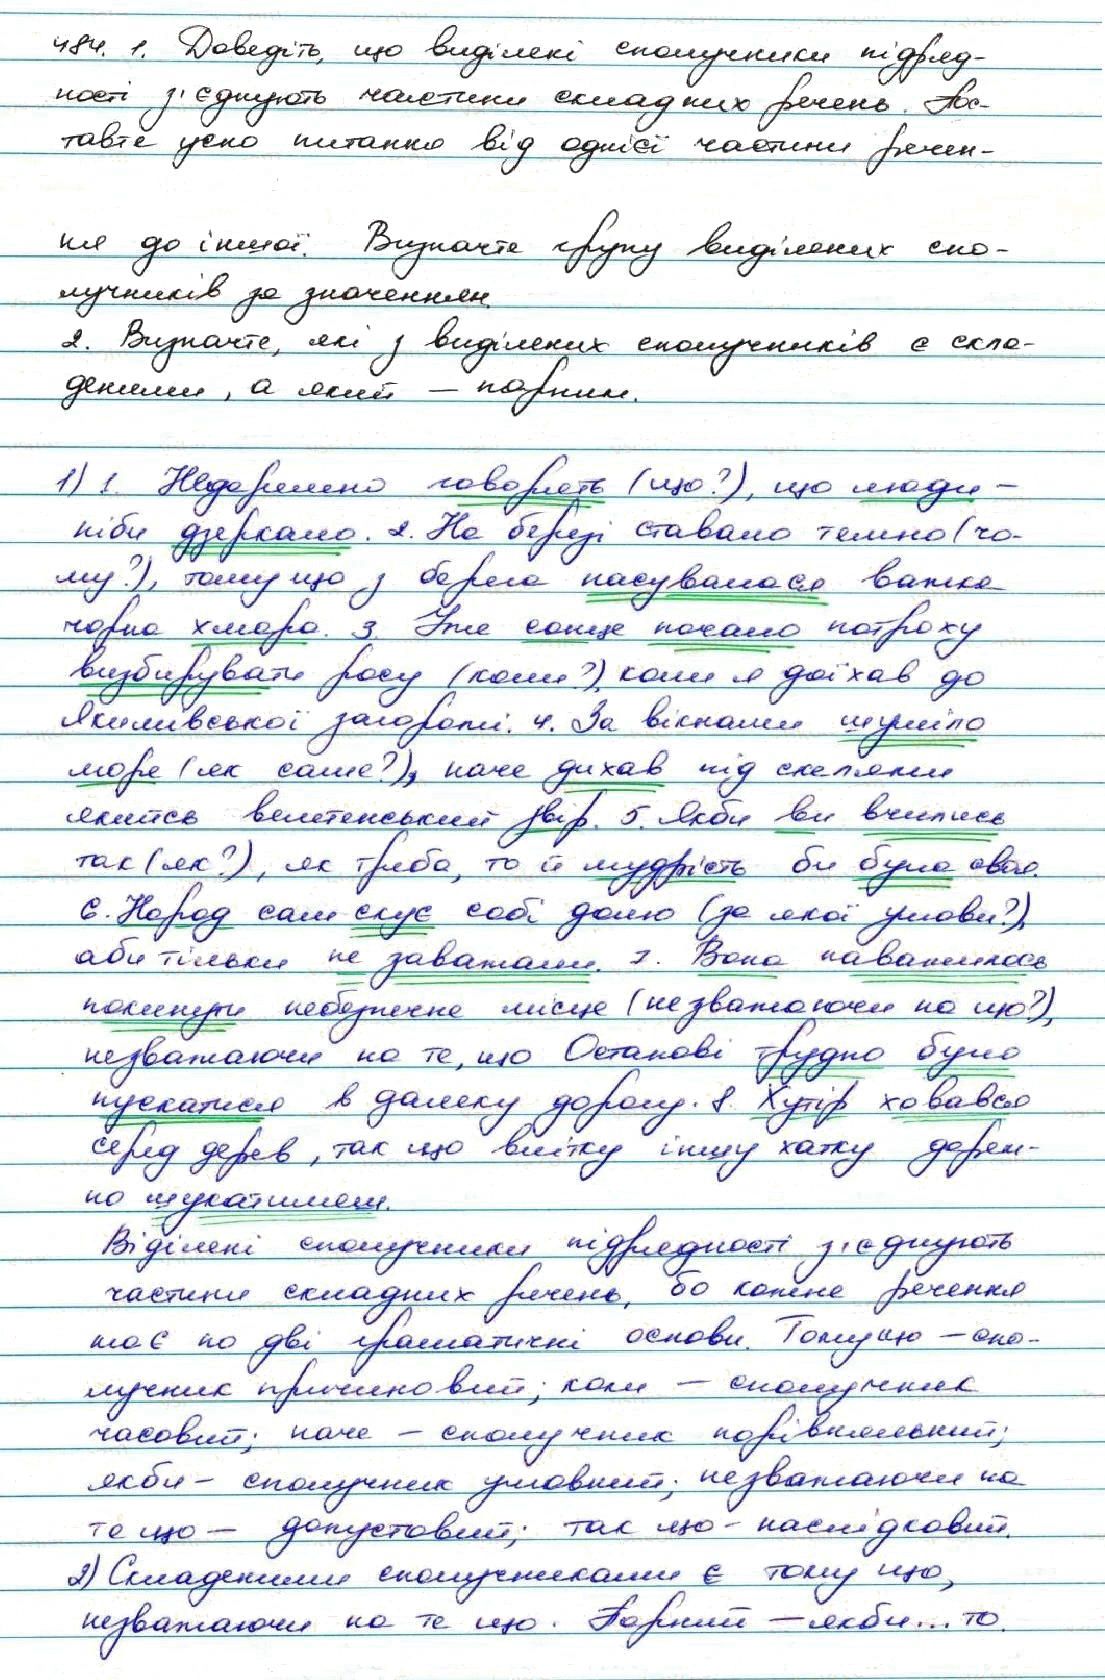 484. 1. Доведіть, що виділені сполучники підряд-
ності з'єднують частини складних речень. Пос-
тавте усно питання від однієї частини речен-
ня до іншої. Визначте групу виділених спо-
лучників за значенням.
2. Визначте, які з виділених сполучників є скла-
деними, а який — парним.
1) 1. Недаремно говорять (що?), що люди –
ніби дзеркало. 2. На березі ставало темно (чо-
му?), тому що з берега насувалася важка
чорна хмара. 3. Уже сонце почало потроху
визбирувати росу (коли?), коли я доїхав до
Якимівської загороти. 4. За вікнами шуміло
море (як саме?), наче дихав під скелями
якийсь велетенський звір. 5. Якби ви вчились
так (як?), як треба, то й мудрість би була своя.
6. Народ сам скує собі долю (за якої умови?),
аби тільки не заважали. 7. Вона наважилась
покинути небезпечне місце (незважаючи на що?),
незважаючи на те, що Остапові трудно було
пускатися в далеку дорогу. 8. Хутір ховався
серед дерев, так що влітку іншу хатку дарем-
но шукатимеш.
Віділені сполучники підрядності з'єднують
частини складних речень, бо кожне речення
має по дві граматичні основи. Тому що — спо-
лучник причиновий; коли — сполучник
часовий; наче – сполучник порівняльний;
якби – сполучник умовний; незважаючи на
те що — допустовий; так що – наслідковий.
2) Складеними сполучниками є тому що,
незважаючи на те що. Парний — якби... то.